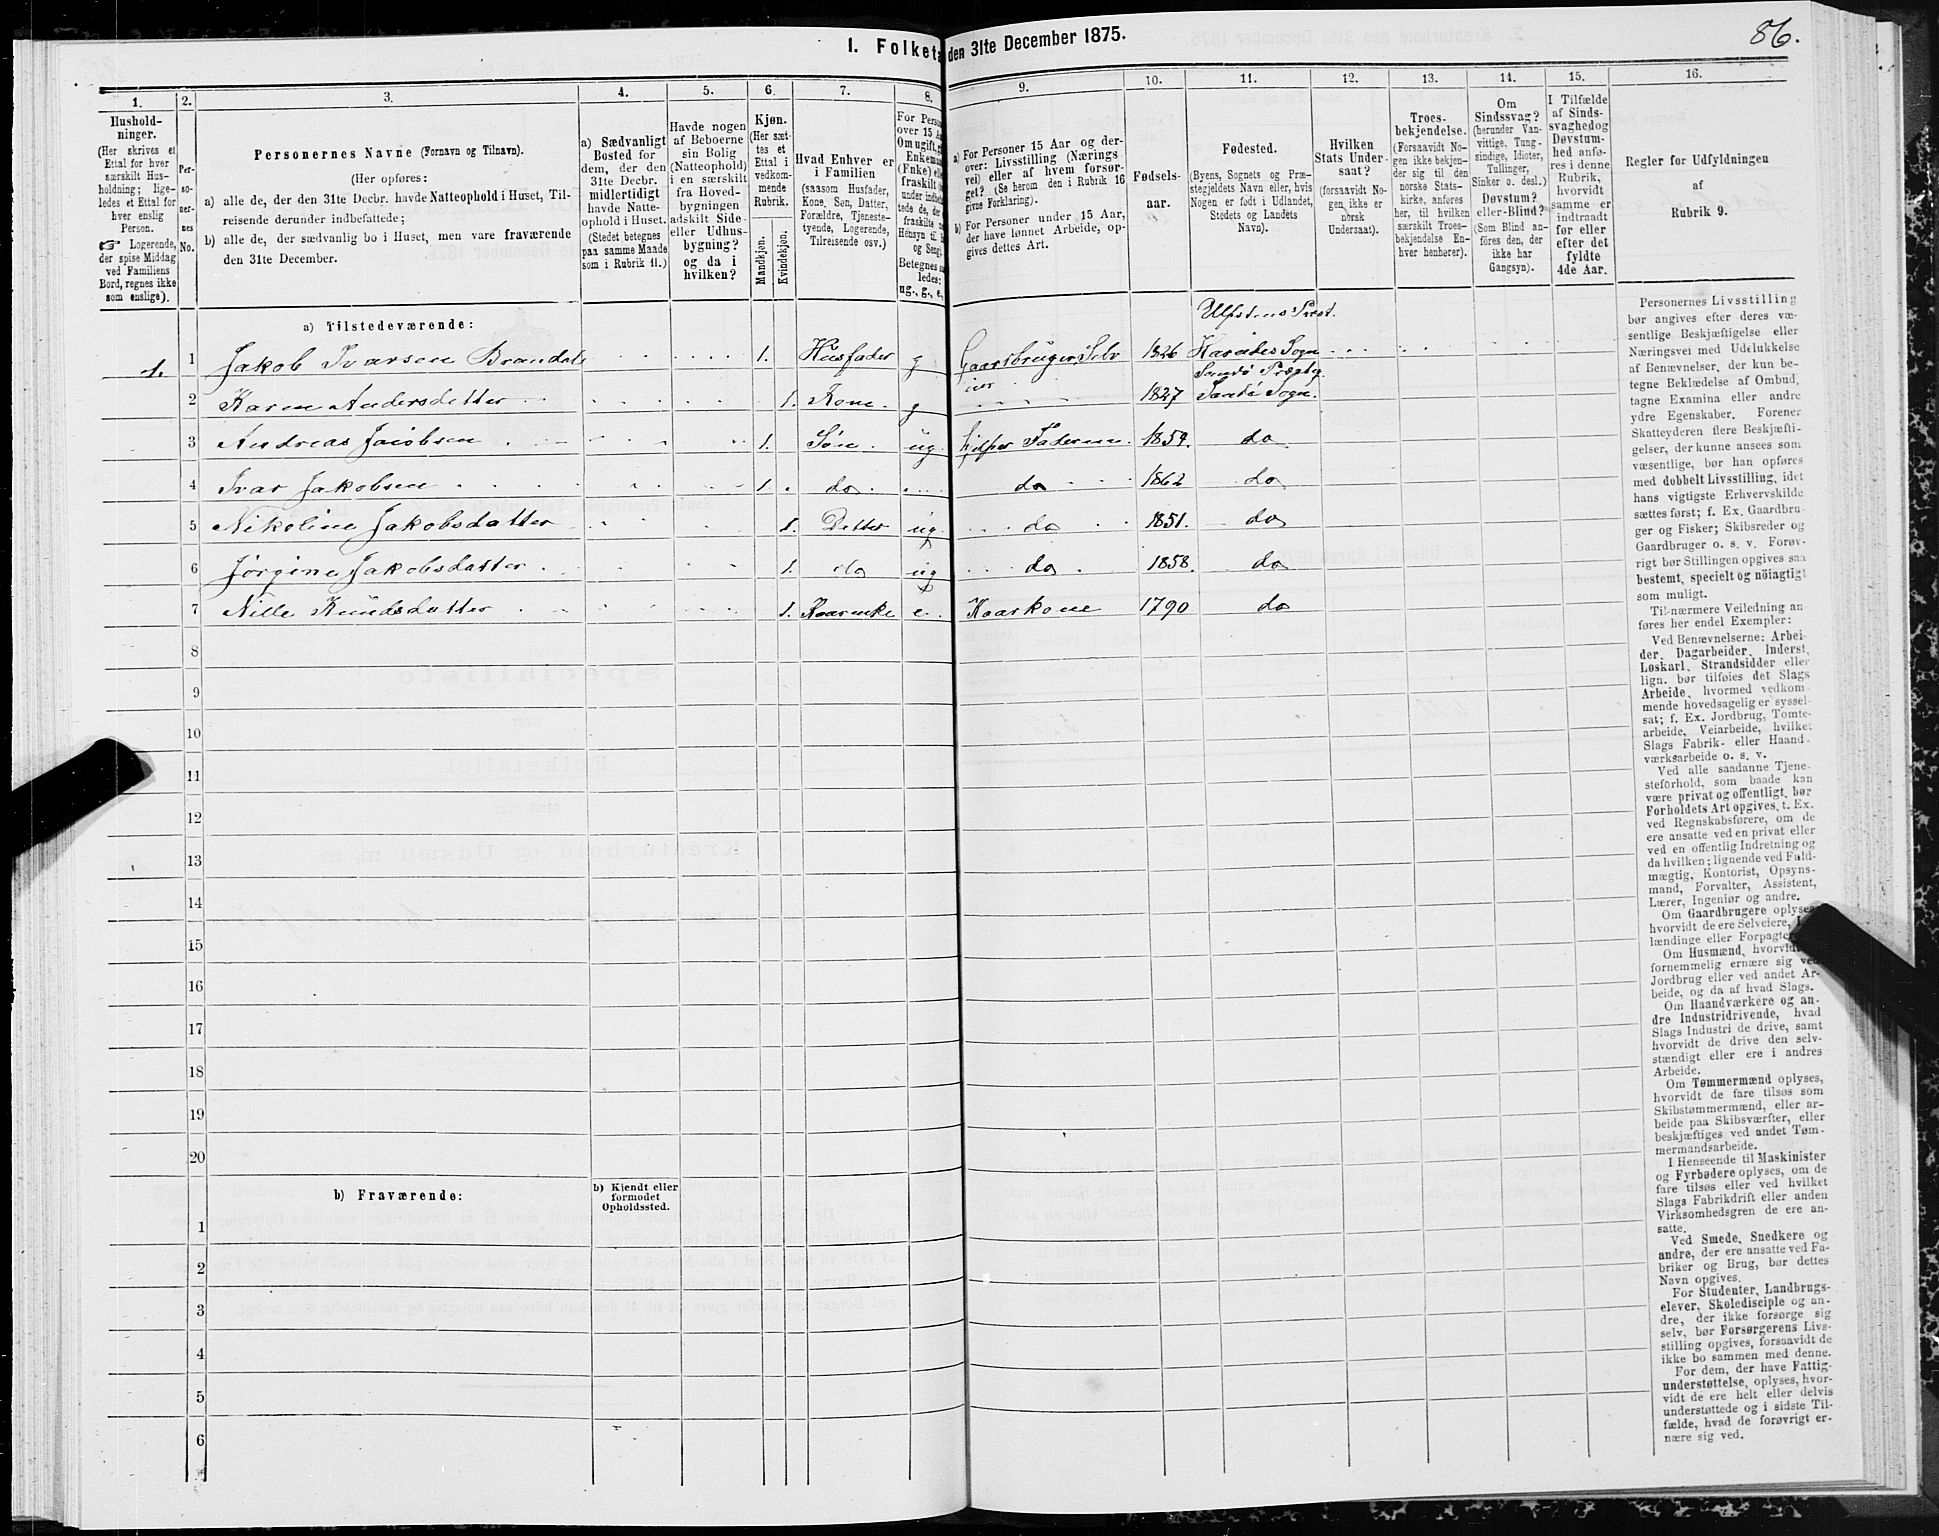 86.
1. Folketa
den 31te December 1875.
1.
2.
3.
4.
5.
6.
7.
8.
9.
10.
11.
12.
13.
14.
15.
16.
Hushold-
ninger.
(Her skrives et
Ettal for hver
særskilt Hus-
holdning; lige-
ledes et Ettal for
hver enslig
Person.
☞ Logerende,
der spise Middag
ved Familiens
Bord, regnes ikke
som enslige).
Per-
so-
ner-
nes
No.
Personernes Navne (Fornavn og Tilnavn).
(Her opføres:
a) alle de, der den 31te Decbr. havde Natteophold i Huset, Til-
reisende derunder indbefattede;
b) alle de, der sædvanlig bo i Huset, men vare fraværende
den 31te December.
a) Sædvanligt
Bosted for
dem, der den
31te Decbr.
midlertidigt
havde Natte-
ophold i Huset.
(Stedet betegnes
paa samme Maade
som i Rubrik 11.)
Havde nogen
af Beboerne
sin Bolig
(Natteophold)
i en særskilt
fra Hoved-
bygningen
adskilt Side-
eller Udhus-
bygning?
og da i
hvilken?
Kjøn.
(Her sæt-
tes et
Ettal i
vedkom-
mende
Rubrik.
Mandkjøn.
Kvindekjøn.
Hvad Enhver er
i Familien
(saasom Husfader,
Kone, Søn, Datter,
Forældre, Tjeneste-
tyende, Logerende,
Tilreisende osv.)
For Perso
over 15 Aa
Om ugift, g
Enkem
(Fnke) elle
fraskilt
under indbe
tede de, de
fraskilte
Hensyn til
og Seng)
Betegnes sa
ledes:
ug., g., e.,
a) For Personer 15 Aar og der-
over: Livsstilling (Nærings
vei) eller af hvem forsør-
get? (Se herom den i Rubrik 16
givne Forklaring).
b) For Personer under 15 Aar,
der have lønnet Arbeide, op-
gives dettes Art.
Fødsels-
aar.
Fødested.
(Byens, Sognets og Præ-
stegjeldets Navn eller, hvis
Nogen er født i Udlandet,
Stedets og Landets
Navn).
Hvilken
Stats Under-
saat?
(forsaavidt No-
gen ikke er
norsk
Undersaat).
Troes-
bekjendelse.
(Forsaavidt No-
gen ikke bekjen-
der sig til den
norske Stats-
kirke, anføres
her, til hvilken
særskilt Troes-
bekjendelse En-
hver henhører).
Om
Sindssvag?
(herunder Van-
vittige, Tung-
sindige, Idioter,
Tullinger,
Sinker o. desl.)
Døvstum?
eller Blind?
(Som Blind an-
føres den, der
ikke har
Gangsyn).
I Tilfælde
af Sinds-
svaghed og
Døvstum-
hed anfø-
res i denne
Rubrik,
hvorvidt
samme er
indtraadt
før eller
efter det
fyldte
4de Aar.
Regler for Udfyldningen
af
Rubrik 9.
a) Tilstedeværende:
Ulfstens Præst.
1. 1 Jakob Ivarsen Brandal 1. Husfader g Gaardbruger, Selv 1826 Hareides Sogn
eier Sandø Præsteg.
2 Karen Andersdatter 1. Kone g 1827 Sandø Sogn.
3 Andreas Jacobsen 1. Søn. ug. hjelper Faderen. 1854. do
4 Ivar Jakobsen 1. do. do 1862 do
5 Nikoline Jakobsdatter 1. Datter ug. do 1851. do
6 Jørgine Jakobsdatter 1. do ug do. 1858. do
7 Nille Knudsdatter 1. e. Kaarkone 1790 do
8
9
10
11
12
13
14
15
16
17
18
19
20
b) Fraværende:
b) Kjendt eller
formodet
Opholdssted.
1
2
3
4
5
6
Personernes Livsstilling
bør angives efter deres væ-
sentlige Beskjæftigelse eller
Næringsvei med Udelukkelse
af Benævnelser, der kun be-
tegne Beklædelse af Ombud,
tagne Examina eller andre
ydre Egenskaber. Forener
Skatteyderen flere Beskjæfti-
gelser, der kunne ansees som
væsentlige, bør han opføres
med dobbelt Livsstilling, idet
hans vigtigste Erhvervskilde
sættes først; f. Ex. Gaardbru-
ger og Fisker; Skibsreder og
Gaardbruger o. s. v. Forøv-
rigt bør Stillingen opgives saa
bestemt, specielt og nøiagtigt
som muligt.
Til nærmere Veiledning an
føres her endel Exempler:
Ved Benævnelserne: Arbei-
der, Dagarbeider, Inderst,
Løskarl, Strandsidder eller
lign. bør tilføies det Slags
Arbeide, hvormed vedkom-
mende hovedsagelig er syssel-
sat; f. Ex. Jordbrug, Tomte-
arbeide, Veiarbeide, hvilket
Slags Fabrik- eller Haand-
værksarbeide o. s. v.
Ved alle saadanne Tjene-
steforhold, som baade kan
være privat og offentligt, bør
Forholdets Art opgives, t. Ex.
ved Regnskabsførere, om de
ere ansatte ved en privat eller
ved en offentlig Indretning og
da hvilken; lignende ved Fuld-
mægtig, Kontorist, Opsyns-
mand, Forvalter, Assistent,
Lærer, Ingeniør og andre.
Om Gaardbrugere oplyses,
hvorvidt de ere Selveiere,
lændinge eller Forpagte
Om Husmænd, hvorvidt
fornemmelig ernære sig ved
Jordbrug eller ved andet Ar-
beide, og da af hvad Slags.
Om Haandværkere og an-
dre Industridrivende, hvad
Slags Industri de drive, samt
hvorvidt de drive den selv-
stændigt eller ere i andres
Arbeide.
Om Tømmermænd oplyses,
hvorvidt de fare tilsøs som
Skibstømmermænd, eller ar-
beide paa Skibsværfter, eller
beskjæftiges ved andet Tøm-
mermandsarbeide.
I Henseende til Maskinister
og Fyrbødere oplyses, om de
fare tilsøs eller ved hvilket
Slags Fabrikdrift eller anden
Virksomhedsgren de ere an-
satte.
Ved Smede, Snedkere og
andre, der ere ansatte ved Fa-
briker og Brug, bør dettes
Navn opgives.
For Studenter, Landbrugs-
elever, Skoledisciple og an-
dre, der ikke forsørge sig
selv, bør Forsørgerens Livs-
stilling opgives, forsaavidt de
ikke bo sammen med denne.
For dem, der have Fattig-
understøttelse, oplyses, hvor-
vidt de ere helt eller delvis
understøttede og i sidste Til-
fælde, hvad de forøvrigt er-
nære sig ved.